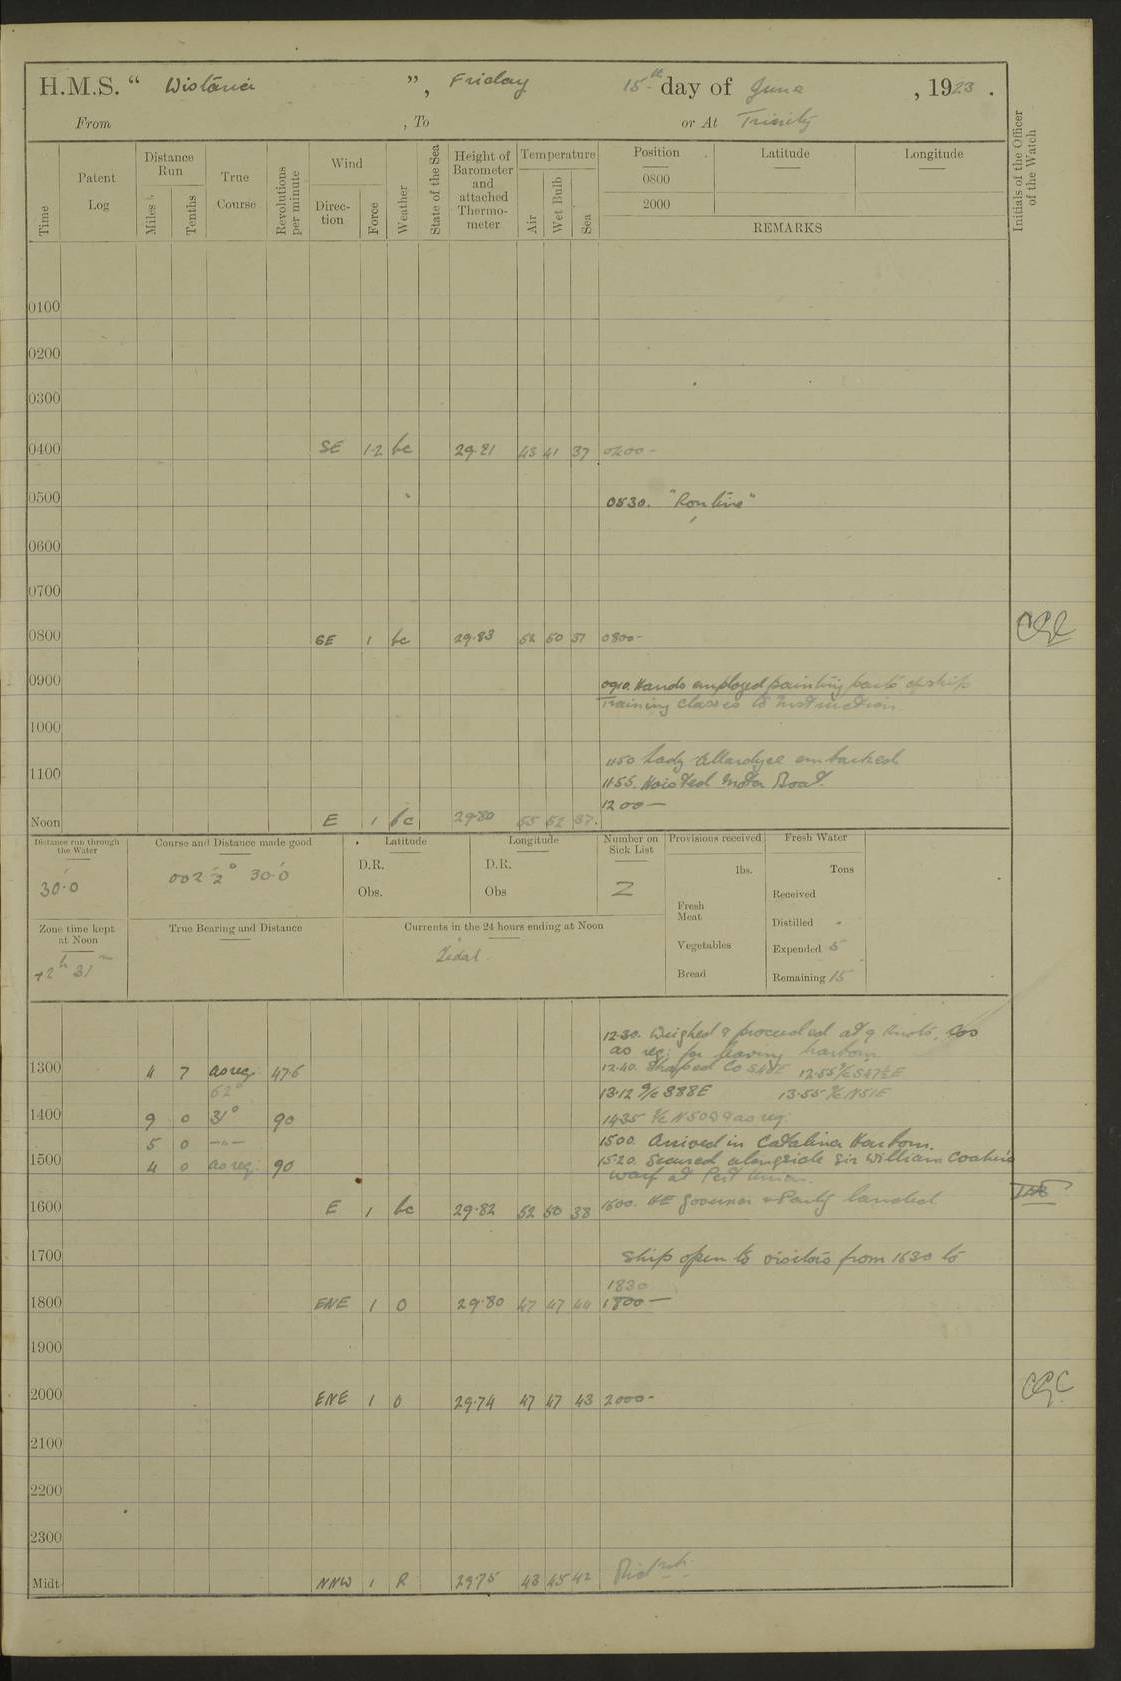 H.M.S. " Wistaria ", Friday 15th day of June, 1923.
From , To or At Trinity
Time
Patent Log
Distance Run
Miles
Tenths
True Course
Revolutions per minute
Wind
Direc-tion
Force
Weather
State of the Sea
Height of Barometer and attached Thermo-meter
Temperature
Air
Wet Bulb
Sea
Position Latitude Longitude
0800
2000
REMARKS
Initials of the Officer of the Watch
0100
0200
0300
0400 SE 1-2 bc 29.81 43 41 37 0400-
0500 0530. "Routine"
0600
0700
0800 SE 1 bc 29.83 52 50 37 0800-
0900 0910. Hands employed painting parts of ship
Training classes to Instruction
1000
1150 Lady Allardyce embarked
1100 1155. Hoisted Motor Boat.
1200-
Noon E 1 bc 29.80 55 52 37.
Distance run through the Water
30.0
Course and Distance made good
002½° 30.0
Latitude
D.R.
Obs.
Longitude
D.R.
Obs
Number on Sick List
2
Provisions received
lbs.
Fresh Meat
Vegetables
Bread
Fresh Water
Tons
Received
Distilled -
Expended 5
Remaining 15
Zone time kept at Noon
+2h 31m
True Bearing and Distance
Currents in the 24 hours ending at Noon
Tidal
12.30. Weighed & proceeded at 9 knots. Cos
as req: for leaving harbour
1300 4 7 as req 47.6 12.40. Shaped Co S48E 12.55 A/C S47½E
62° 13.12 A/C S88E 13.55 A/C N51E
1400 9 0 31° 90 1435 A/C as req.
5 0 -"- 1500. Arrived in Catalina Harbour.
1500 4 0 as req: 90 15.20. Secured alongside Sir William Coaker's
warf at Port Union.
1600 E 1 bc 29.82 52 50 38 1600. HE Governor & Party landed
1700 Ship open to visitors from 1630 to
1830
1800 ENE 1 O 29.80 47 47 44 1800-
1900
2000 ENE 1 O 29.74 47 47 43 2000-
CGC
2100
2200
2300
Midt NNW 1 R 29.75 43 45 42